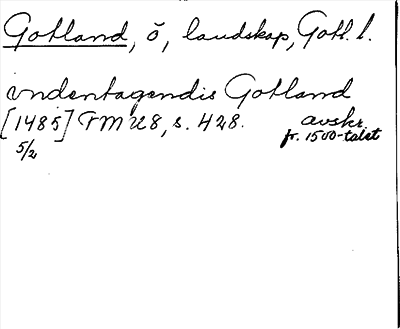 Gotland, ö, landskap, Gotl. l.
vndentagendis Gotland
[1485] FMU 8, s. 428. avskr.
5/2 fr. 1500-talet